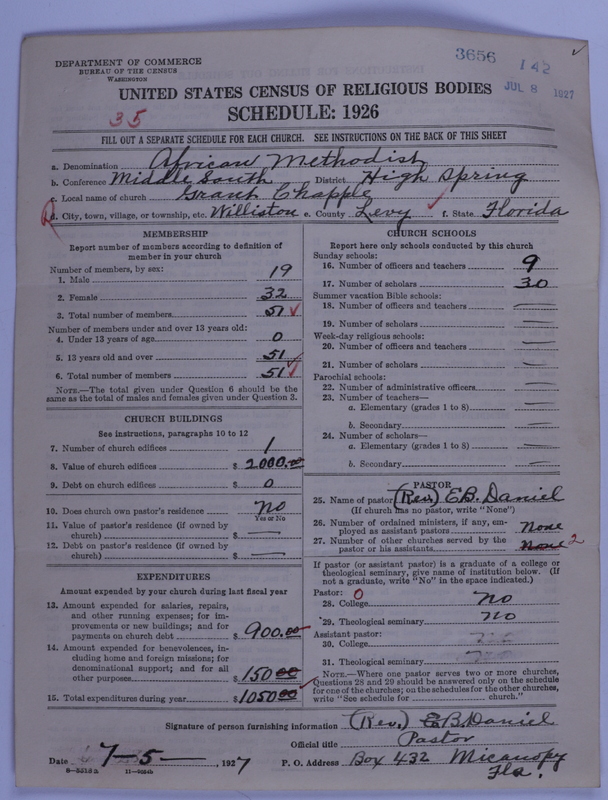 DEPARTMENT OF COMMERCE
BUREAU OF THE CENSUS
WASHINGTON
3656
142
JUL 8 1927
UNITED STATES CENSUS OF RELIGIOUS BODIES
35
SCHEDULE: 1926
FILL OUT A SEPARATE SCHEDULE FOR EACH CHURCH. SEE INSTRUCTIONS ON THE BACK OF THIS SHEET
a. Denomination African Methodist
b. Conference Middle South District High Spring
c. Local name of church Grant Chapple
d. City, town, village, or township, etc. Williston e. County Levy f. State Florida
MEMBERSHIP
Report number of members according to definition of member in your church
Number of members, by sex:
1. Male 19
2. Female 32
3. Total number of members 51
Number of members under and over 13 years old:
4. Under 13 years of age 0
5. 13 years old and over 51
6. Total number of members 51
NOTE.—The total given under Question 6 should be the same as the total of males and females given under Question 3.
CHURCH BUILDINGS
See instructions, paragraphs 10 to 12
7. Number of church edifices 1
8. Value of church edifices $ 2000.00
9. Debt on church edifices $ 0
10. Does church own pastor's residence no
Yes or No
11. Value of pastor's residence (if owned by church) $ —
12. Debt on pastor's residence (if owned by church) $ —
EXPENDITURES
Amount expended by your church during last fiscal year
13. Amount expended for salaries, repairs, and other running expenses; for improvements or new buildings; and for payments on church debt $ 900.00
14. Amount expended for benevolences, including home and foreign missions; for denominational support; and for all other purposes $ 150 00
15. Total expenditures during year $ 1050 00
CHURCH SCHOOLS
Report here only schools conducted by this church
Sunday schools:
16. Number of officers and teachers 9
17. Number of scholars 30
Summer vacation Bible schools:
18. Number of officers and teachers —
19. Number of scholars —
Week-day religious schools:
20. Number of officers and teachers —
21. Number of scholars —
Parochial schools:
22. Number of administrative officers —
23. Number of teachers—
a. Elementary (grades 1 to 8) —
b. Secondary —
24. Number of scholars—
a. Elementary (grades 1 to 8) —
b. Secondary —
PASTOR
25. Name of pastor (Rev.) E.B. Daniel
(If church has no pastor, write "None")
26. Number of ordained ministers, if any, employed as assistant pastors none
27. Number of other churches served by the pastor or his assistants none 2
If pastor (or assistant pastor) is a graduate of a college or theological seminary, give name of institution below. (If not a graduate, write "No" in the space indicated.)
Pastor: 0
28. College no
29. Theological seminary no
Assistant pastor:
30. College
31. Theological seminary
NOTE.—Where one pastor serves two or more churches, Questions 28 and 29 should be answered only on the schedule for one of the churches; on the schedules for the other churches, write "See schedule for church."
Signature of person furnishing information (Rev.) E.B. Daniel
Official title Pastor
Date 7-5-, 1927 P. O. Address Box 432 Micanopy
Fla.
8-5518 a 11-9024b